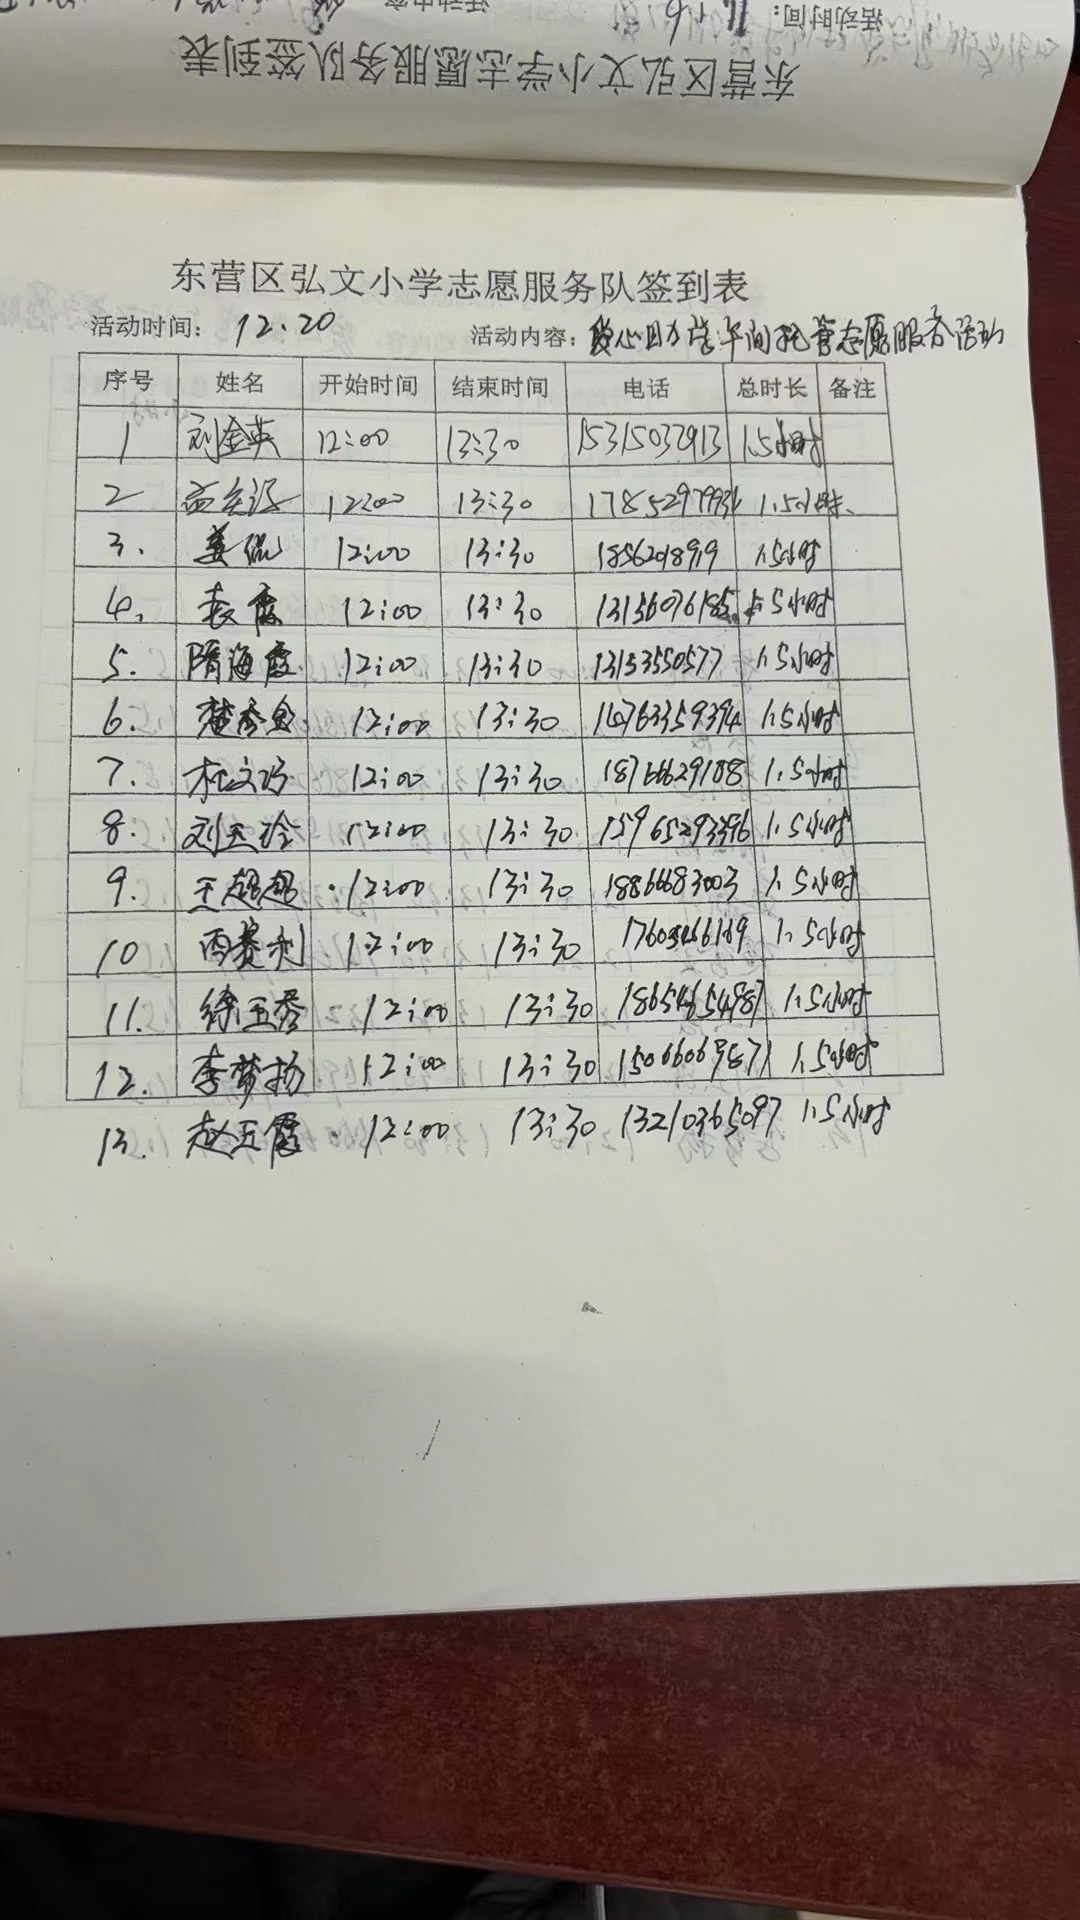 活动时间：
东营区弘文小学志愿服务队签到表
东营区弘文小学志愿服务队签到表
活动时间： 12.20 活动内容：爱心助学午间托管志愿服务活动
序号 姓名 开始时间 结束时间 电话 总时长 备注
1 刘金英 12:00 13:30 15315032913 1.5小时
2 12:00 13:30 1.5小时
3. 姜 12:00 13:30 1.5小时
4. 袁霞 12:00 13:30 1.5小时
5. 隋海霞 12:00 13:30 13153550577 1.5小时
6. 12:00 13:30 1.5小时
7. 杜文巧 12:00 13:30 18766629188 1.5小时
8. 刘玉玲 12:00 13:30 1.5小时
9. 王超超 12:00 13:30 18866683003 1.5小时
10 西赛利 12:00 13:30 1.5小时
11. 徐玉秀 12:00 13:30 18654654987 1.5小时
12. 李梦扬 12:00 13:30 1.5小时
13. 赵玉霞 12:00 13:30 13210365097 1.5小时